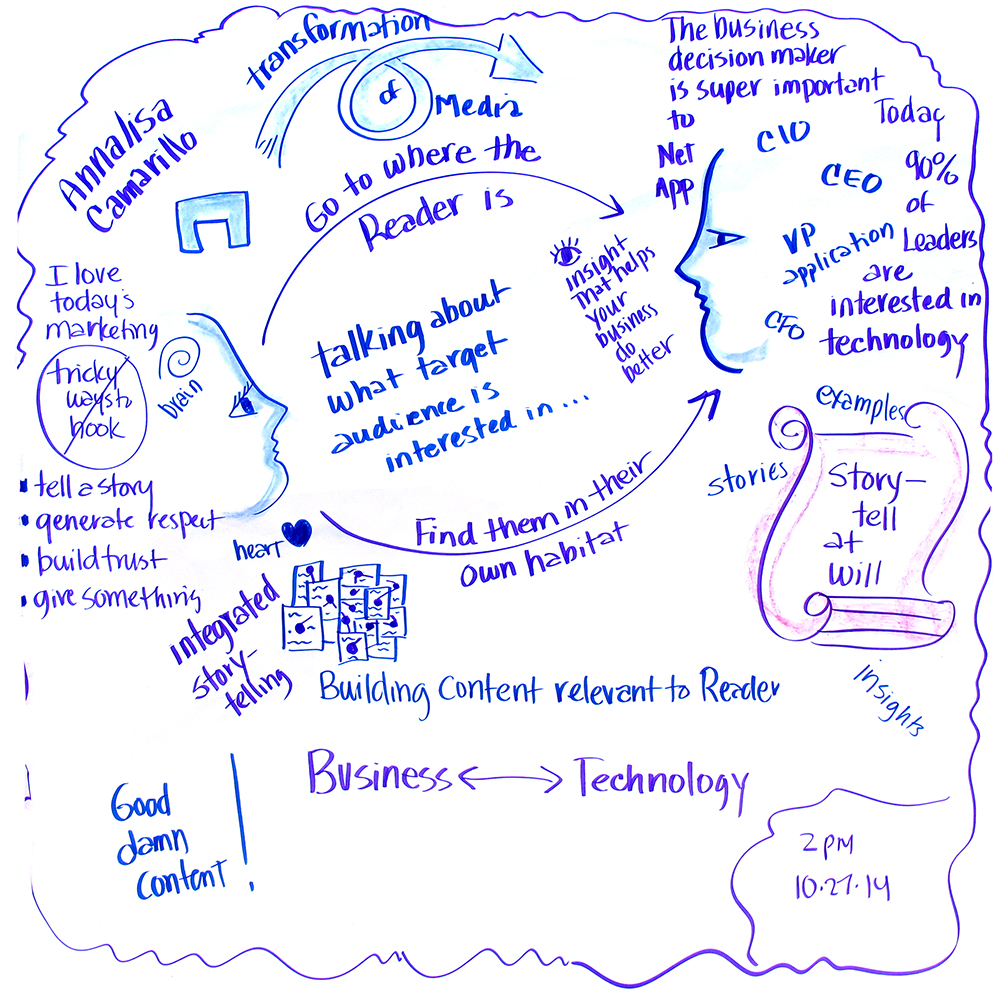 transformation
of
Media
Annalisa
Camarillo
Go to where the
Reader is
The business
decision maker
is super important
to
Net
App
Today
90%
of
Leaders
are
interested in
technology
CIO
CEO
VP
application
CFO
insight
That helps
your
business
do
better
I love
today's
marketing
tricky
ways to
hook
brain
talking about
what target
audience is
interested in...
• tell a story
• generate respect
• build trust
• give something
heart
Find them in their
own habitat
examples
stories
Story-
tell
at
will
insights
integrated
story-
telling
Building Content relevant to Reader
Business <-> Technology
Good
damn
content!
2 PM
10.27.14